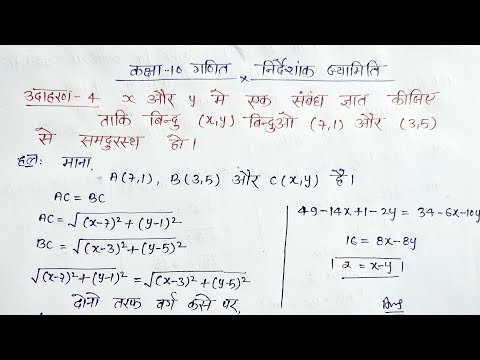 कक्षा-10 गणित x निर्देशांक ज्यामिति
उदाहरण-4 x और y में एक संबंध ज्ञात कीजिए
ताकि बिन्दु (x,y) बिन्दुओ (7,1) और (3,5)
से समदुरस्थ हो।
हल: माना,
A(7,1), B(3,5) और C(x,y) है।
AC = BC
AC = √(x-7)²+(y-1)²
BC = √(x-3)²+(y-5)²
√(x-7)²+(y-1)² = √(x-3)²+(y-5)²
दोनो तरफ वर्ग करने पर,
49-14x+1-2y = 34-6x-10y
16 = 8x-8y
2 = x-y